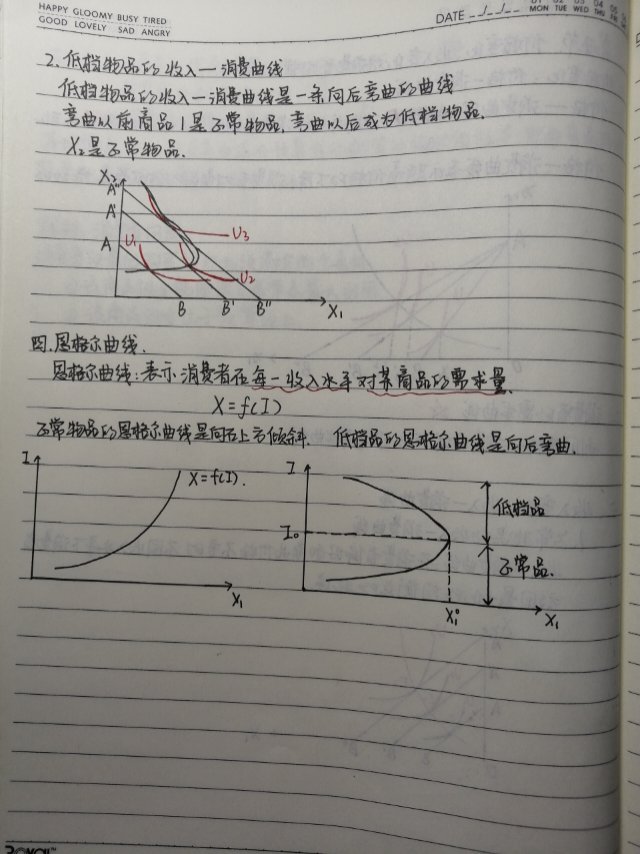 HAPPY GLOOMY BUSY TIRED
GOOD LOVELY SAD ANGRY
DATE
MON TUE WED THU FRI
2.低档物品的收入—消费曲线
低档物品的收入—消费曲线是一条向后弯曲的曲线
弯曲以前商品1是正常物品,弯曲以后成为低档物品.
X₂是正常物品.
X₂
A''
A'
A
U₁
U₃
U₂
B
B'
B''
X₁
四.恩格尔曲线.
恩格尔曲线:表示消费者在每一收入水平对某商品的需求量.
X=f(I)
正常物品的恩格尔曲线是向右上方倾斜. 低档品的恩格尔曲线是向后弯曲.
I
X=f(I).
X₁
I
I₀
低档品
正常品.
X₁⁰
X₁